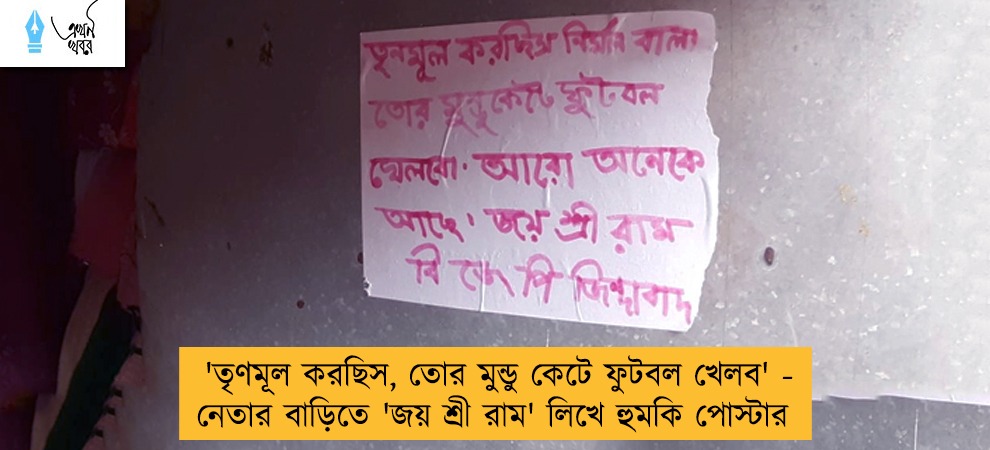 এখন
খবর
তৃণমূল করছিস নির্মল বালা
তোর মুন্ডু কেটে ফুটবল
খেলবো. আরো অনেকে
আছে' জয় শ্রী রাম
বি জে পি জিন্দাবাদ
'তৃণমূল করছিস, তোর মুন্ডু কেটে ফুটবল খেলব' -
নেতার বাড়িতে 'জয় শ্রী রাম' লিখে হুমকি পোস্টার